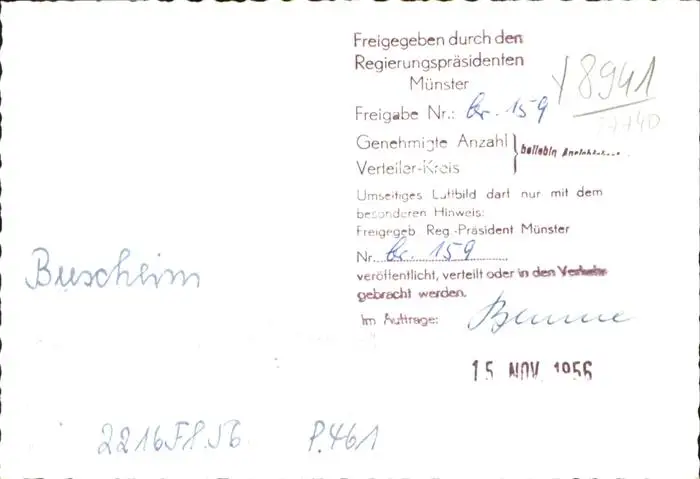 Freigegeben durch den
Regierungspräsidenten
Münster
Freigabe Nr.: br. 159
Y 8941
17740
Genehmigte Anzahl
Verteiler-Kreis
Umseitiges Luftbild darf nur mit dem
besonderen Hinweis:
Freigegeb Reg.-Präsident Münster
Nr. br. 159
veröffentlicht, verteilt oder in den Verkehr
gebracht werden.
Im Auftrage:
15 NOV. 1956
Buscheim
2216 FP. 56 P. 461